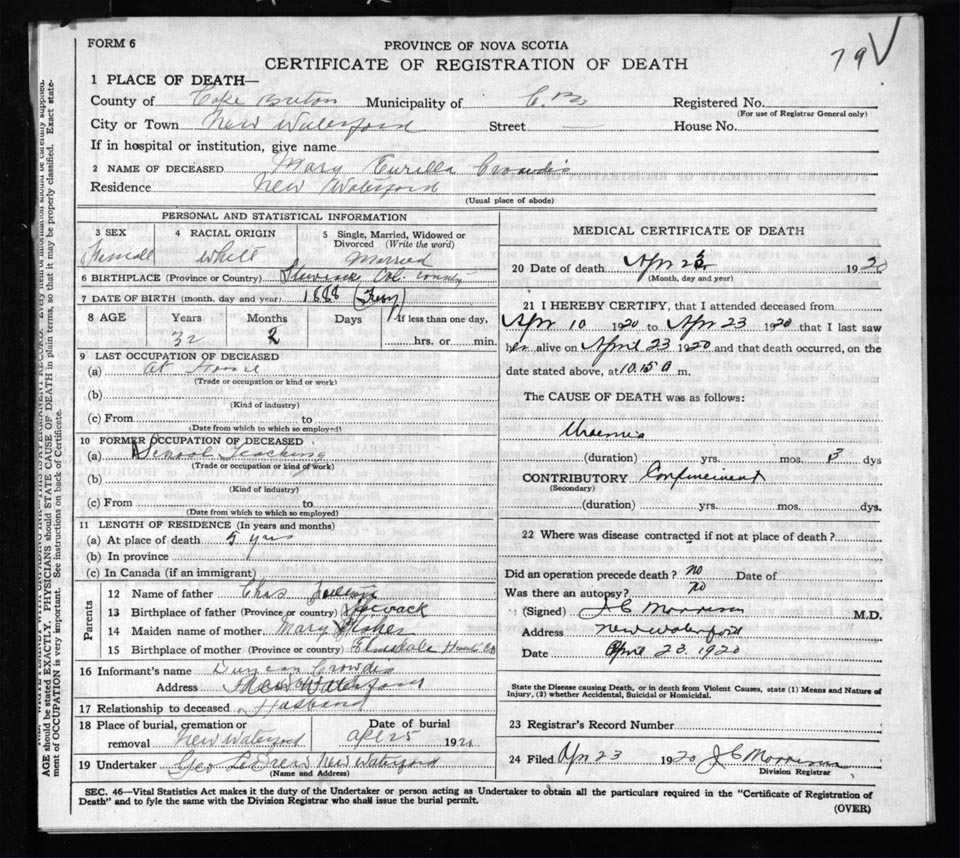 79 V
FORM 6
PROVINCE OF NOVA SCOTIA
CERTIFICATE OF REGISTRATION OF DEATH
1 PLACE OF DEATH—
County of Cape Breton Municipality of C. B. Registered No.
(For use of Registrar General only)
City or Town New Waterford Street — House No.
If in hospital or institution, give name
2 NAME OF DECEASED Mary Crowdis
Residence New Waterford
(Usual place of abode)
PERSONAL AND STATISTICAL INFORMATION
3 SEX 4 RACIAL ORIGIN 5 Single, Married, Widowed or Divorced (Write the word)
Female White Married
6 BIRTHPLACE (Province or Country) Stewiacke Col. County
7 DATE OF BIRTH (month, day and year) 1888
8 AGE Years Months Days If less than one day,
32 2 hrs. or min.
9 LAST OCCUPATION OF DECEASED
(a) At Home
(Trade or occupation or kind or work)
(b)
(Kind of industry)
(c) From to
(Date from which to which so employed)
10 FORMER OCCUPATION OF DECEASED
(a) School Teaching
(Trade or occupation or kind of work)
(b)
(Kind of industry)
(c) From to
(Date from which to which so employed)
11 LENGTH OF RESIDENCE (In years and months)
(a) At place of death 5 yrs
(b) In province
(c) In Canada (if an immigrant)
Parents
12 Name of father Chas
13 Birthplace of father (Province or country)
14 Maiden name of mother Mary Fisher
15 Birthplace of mother (Province or country) Elmsdale Hants Co
16 Informant's name Duncan Crowdis
Address New Waterford
17 Relationship to deceased Husband
18 Place of burial, cremation or removal New Waterford Date of burial Apl 25 192
19 Undertaker Geo New Waterford
(Name and Address)
MEDICAL CERTIFICATE OF DEATH
20 Date of death Apr 23 1920
(Month, day and year)
21 I HEREBY CERTIFY, that I attended deceased from
Apr 10 1920 to Apr 23 1920 that I last saw
her alive on April 23 1920 and that death occurred, on the
date stated above, at 10.15 a m.
The CAUSE OF DEATH was as follows:
Uraemia
(duration) yrs. mos. 3 dys
CONTRIBUTORY Confinement
(Secondary)
(duration) yrs. mos. dys.
22 Where was disease contracted if not at place of death?
Did an operation precede death? no Date of
Was there an autopsy? no
(Signed) J C Morrison M.D.
Address New Waterford
Date April 23. 1920
State the Disease causing Death, or in death from Violent Causes, state (1) Means and Nature of
Injury, (2) whether Accidental, Suicidal or Homicidal.
23 Registrar's Record Number
24 Filed Apr 23 1920 J C Morrison
Division Registrar
SEC. 46—Vital Statistics Act makes it the duty of the Undertaker or person acting as Undertaker to obtain all the particulars required in the "Certificate of Registration of
Death" and to fyle the same with the Division Registrar who shall issue the burial permit.
(OVER)
AGE should be stated EXACTLY. PHYSICIANS should STATE CAUSE OF DEATH in plain terms, so that it may be properly classified. Exact state-
ment of OCCUPATION is very important. See instructions on back of Certificate.